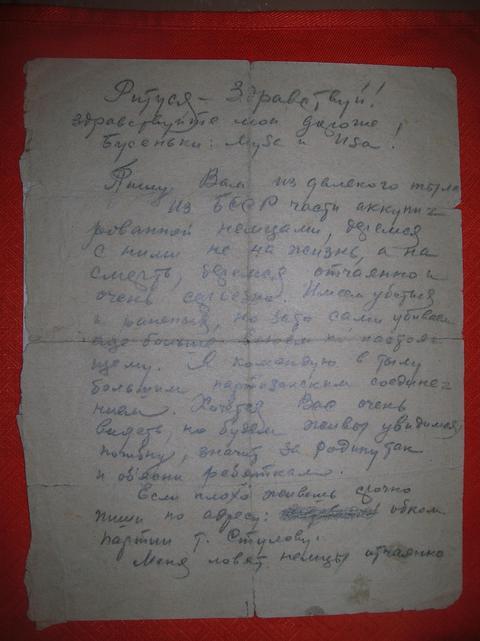 Ритуся – Здравствуй!!
Здравствуйте мои дорогие
Бусеньки: Муза и Иза!
Пишу Вам из далекого тыла
Из БССР части аккупи=
рованной немцами, деремся
с ними не на жизнь, а на
смерть, деремся отчаянно и
очень серьезно. Имеем убитых
и раненых, но зато сами убиваем
еще больше по настоя
щему. Я командую в тылу
большим партизанским соедине=
нием. Хочется Вас очень
видеть, но будем живы увидимся,
погибну, значит за родину так
и объясни ребяткам.
Если плохо живешь срочно
пиши по адресу: обком
партии т. Стулову.
Меня ловят немцы отчаянно